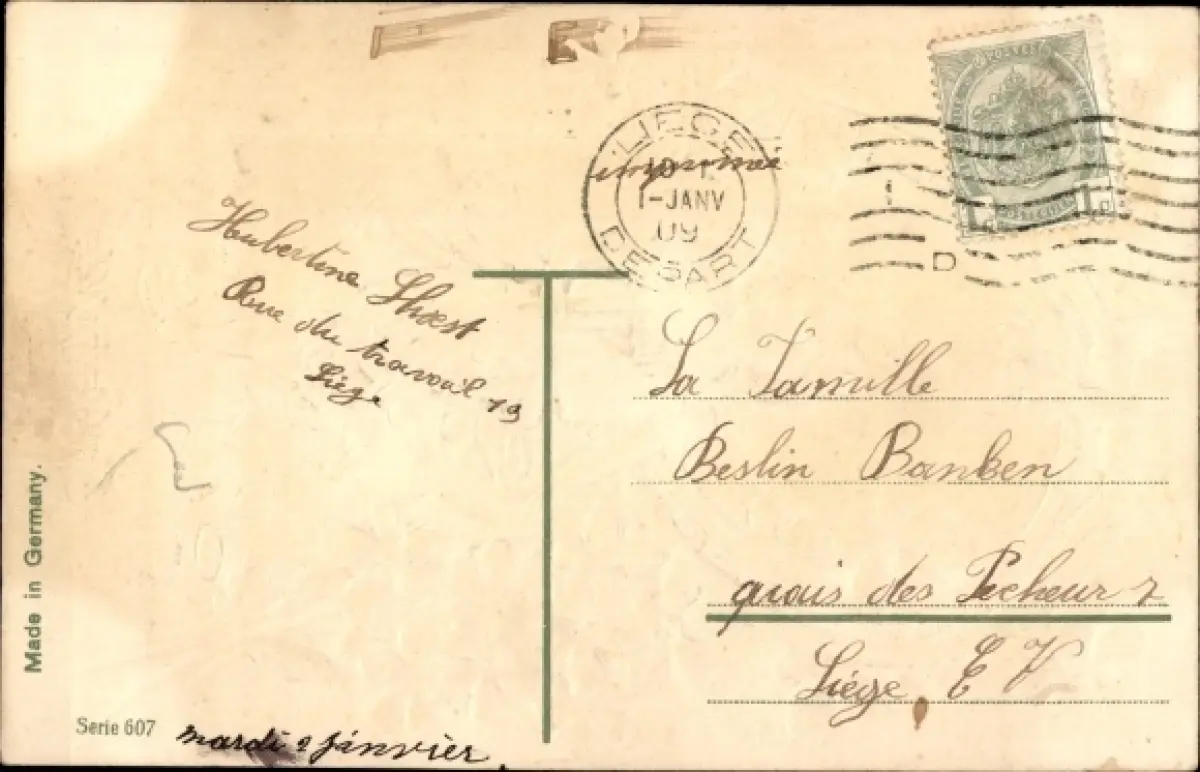 LIEGE
imprimé
1-JANV
09
DEPART
D
Hubertine
Rue du travail 19
Liége
La Famille
Beslin Banken
quais des Pecheur
Liége, E V
Made in Germany.
Serie 607
mardi 2 janvier.